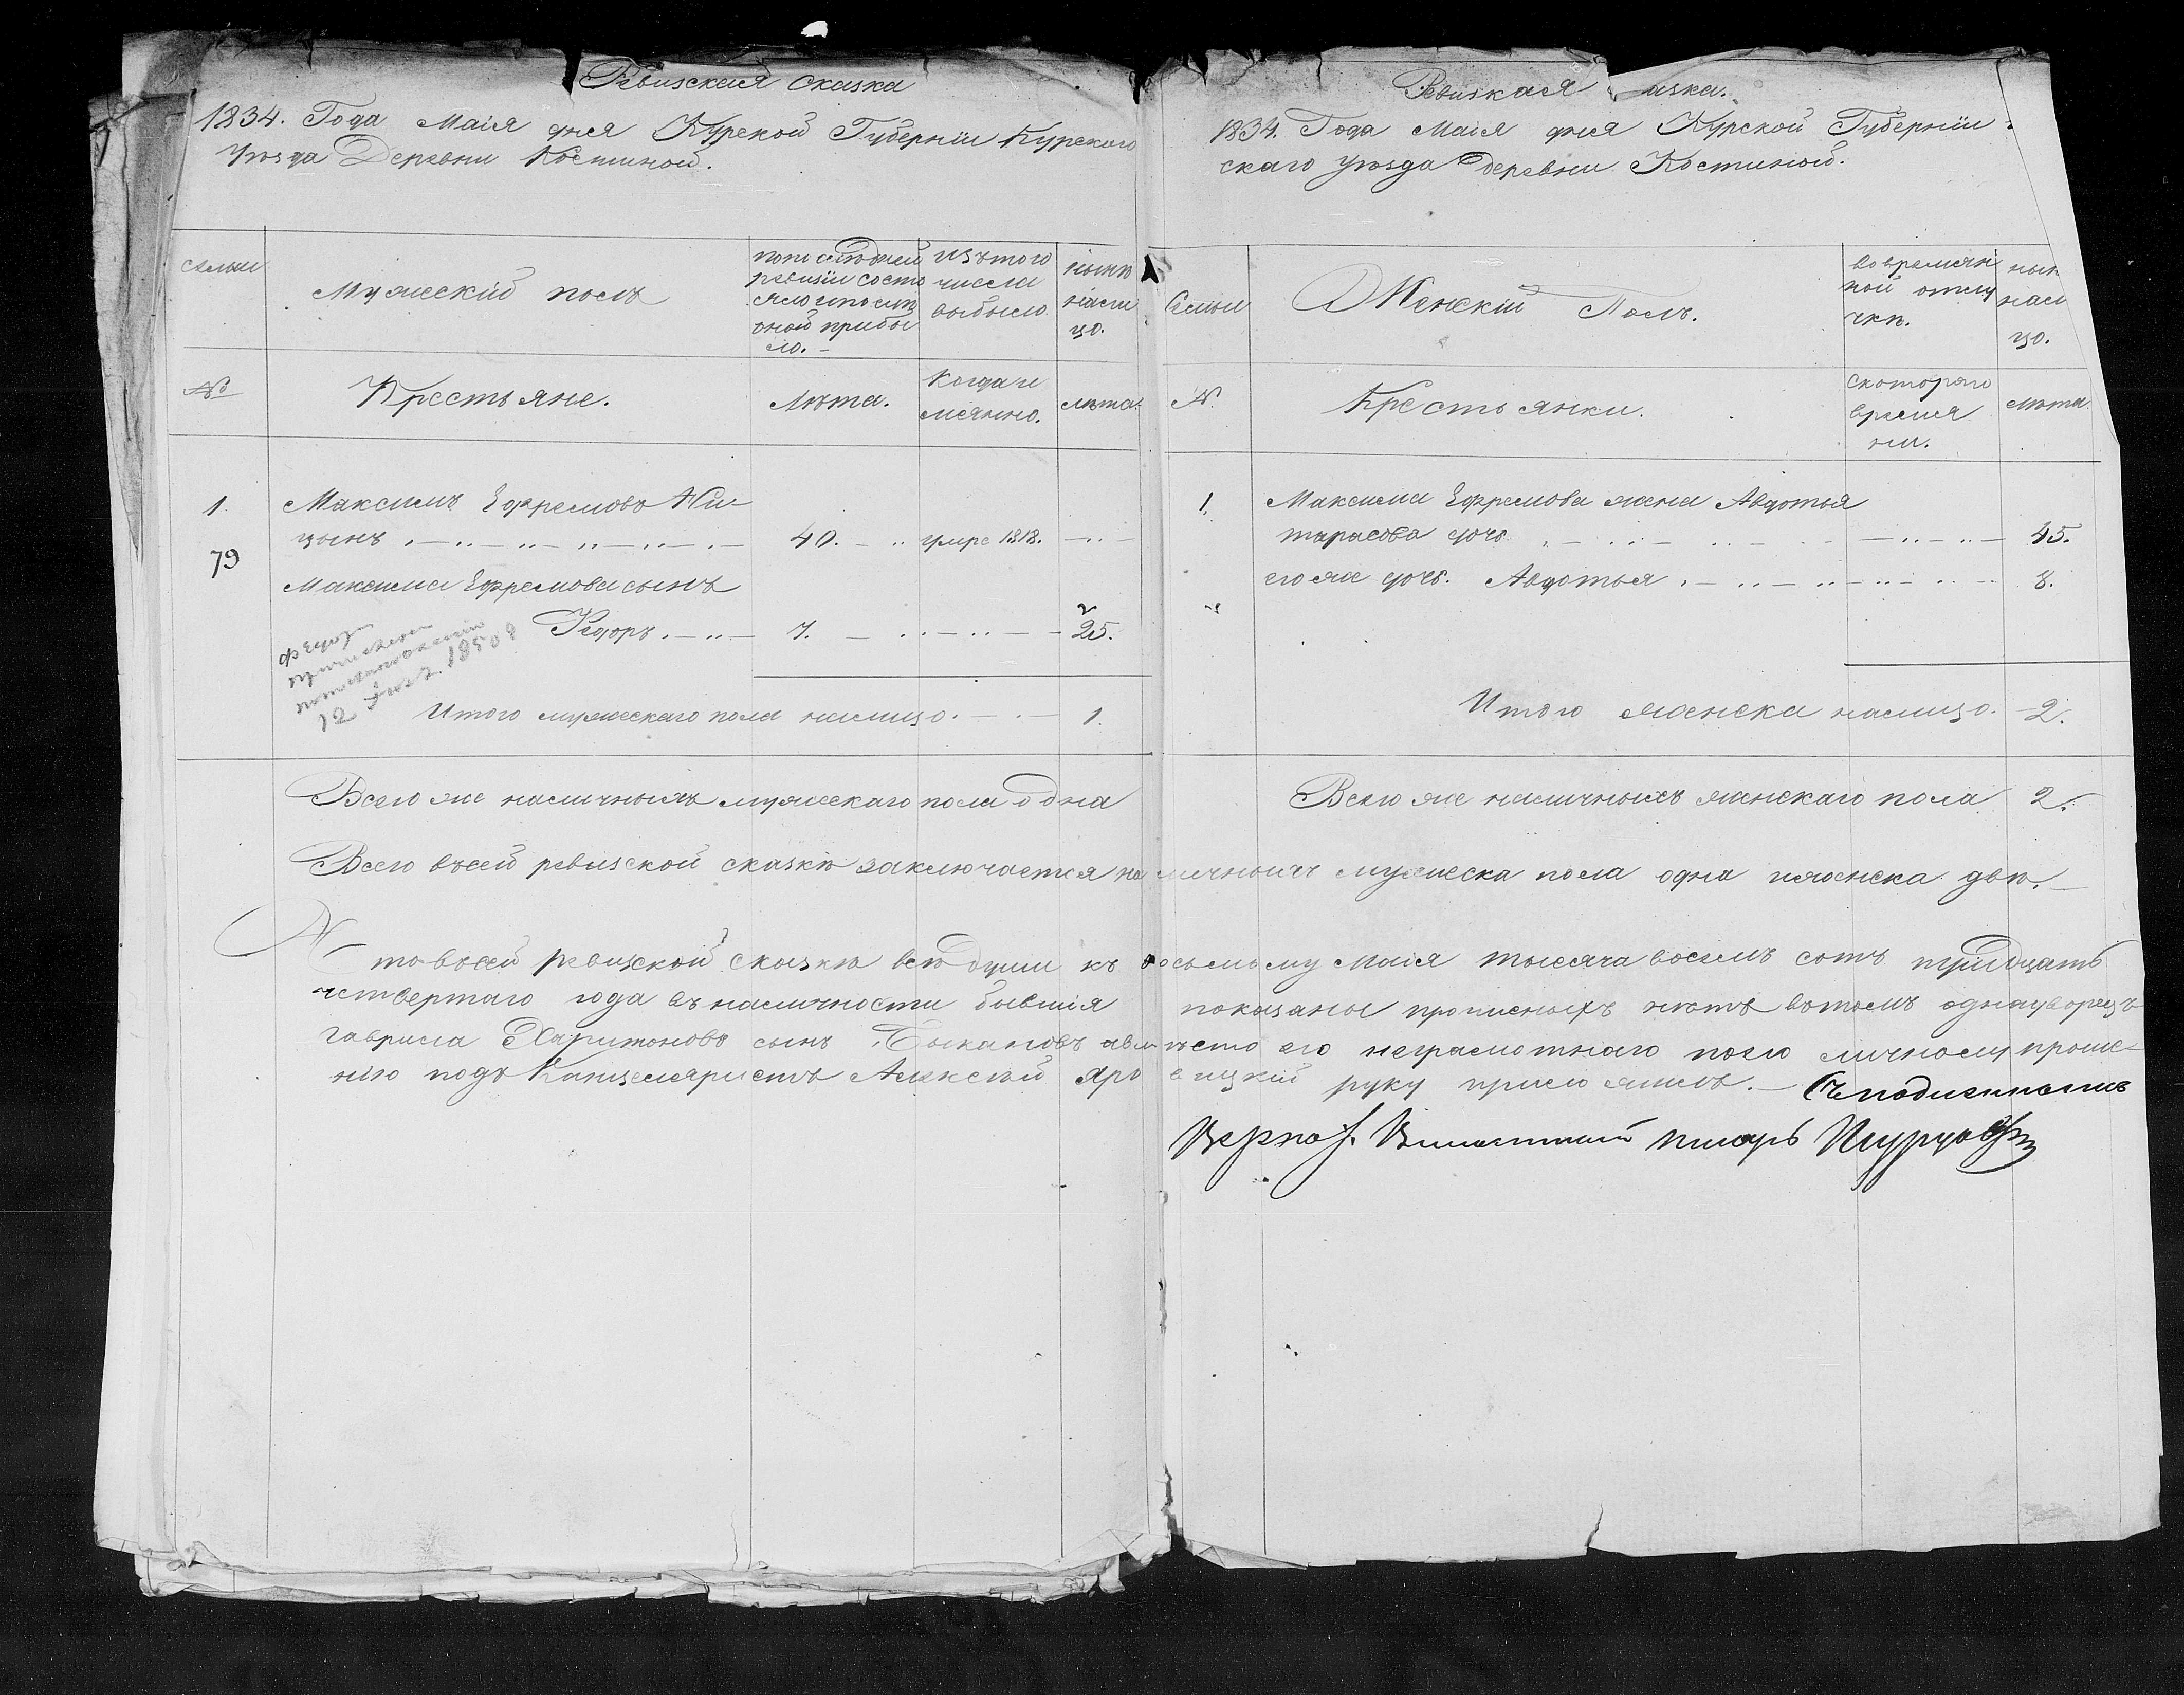 Ревизская сказка
1834. Года Маія дня Курской Губерніи Курскаго
Уѣзда Деревни Костиной.
семьи
Мужескій полъ
попоследней
ревизіи состо
яло ипослѣ
оной прибы
ло. -
изътого
числа
выбыло
нынѣ
нали
цо.
№
Крестьяне.
Лѣта.
Когда и
мянно.
лѣта.
1.
Максимъ Ефремовъ Ни-
цынъ 40. умре 1818.
79
Максима Ефремова сынъ
Федоръ 7. 25.
12 1850
Итого мужескаго пола налицо. 1.
Всего же наличныхъ мужескаго пола одна
Ревизкая азка.
1834. Года Маія дня Курской Губерніи
скаго уѣзда деревни Костиной.
Семьи
Женскій Полъ.
во времян
ной отлу
чкѣ.
нын
нали
цо.
№.
Крестьянки.
скотораго
время
ни.
лѣта.
1.
Максима Ефремова жена Авдотья
тарасова дочь 45.
его же дочь. Авдотья 8.
Итого женска налицо. 2.
Всего же наличныхъ женскаго пола 2.
Всего въсей ревизской сказкѣ заключается наличныхъ мужеска пола одна иженска двѣ.
то всей ревизской сказкѣ всѣ души къ восьмому Маія тысяча восемь сотъ тридцать
четвертаго года въ наличности бывшія показаны прописныхъ нетъ вътомъ однадворецъ
гаврила Харитоновъ сынъ авмѣсто его неграмотнаго поего личному проше-
нію подъ Канцеляристъ Алексѣй руку приложилъ. Съ подлиннымъ
Верно: Волостной писарь